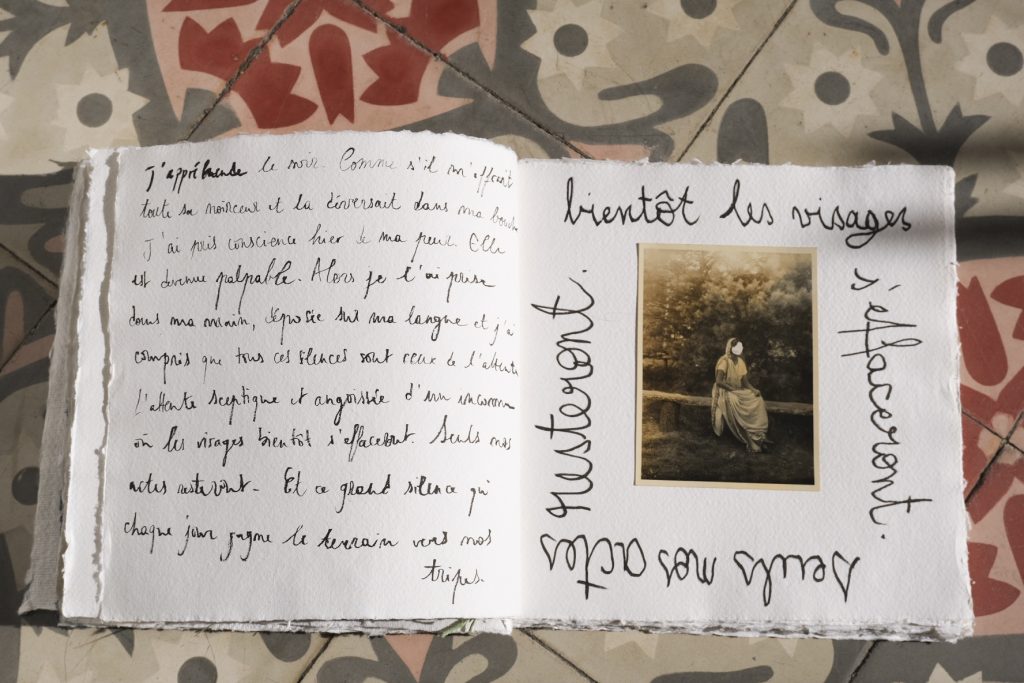 J'appréhende le noir. Comme s'il m'offrait
toute sa noirceur et la déversait dans ma bouche
J'ai pris conscience hier de ma peur. Elle
est devenue palpable. Alors je l'ai prise
dans ma main, déposée sur ma langue et j'ai
compris que tous ces silences sont ceux de l'attente
L'attente sceptique et angoissée d'un inconnu
où les visages bientôt s'effaceront. Seuls nos
actes resteront. Et ce grand silence qui
chaque jour gagne le terrain vers nos
tripes.
bientôt les visages
s'effaceront.
Seuls nos actes
resteront.